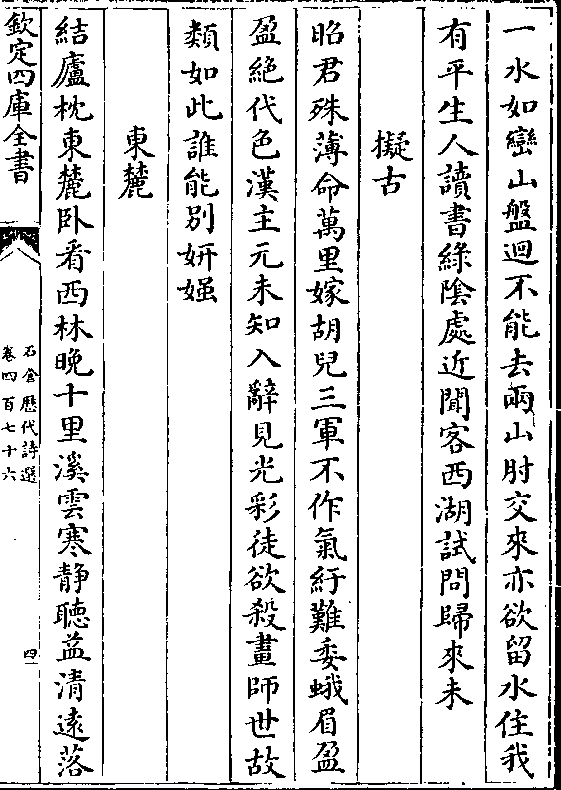 一水如巒山盤迴不能去兩山肘交來亦欲留水住我
有平生人讀書綠陰處近聞客西湖試問歸來未
擬古
昭君殊薄命萬里嫁胡兒三軍不作氣紓難委蛾眉盈
盈絶代色漢主元未知入辭見光彩徒欲殺畫師世故
類如此誰能別妍媸
東麓
結廬枕東麓卧看西林晚十里溪雲寒静聽益清遠落
欽定四庫全書
石倉歷代詩選
卷四百七十六
四